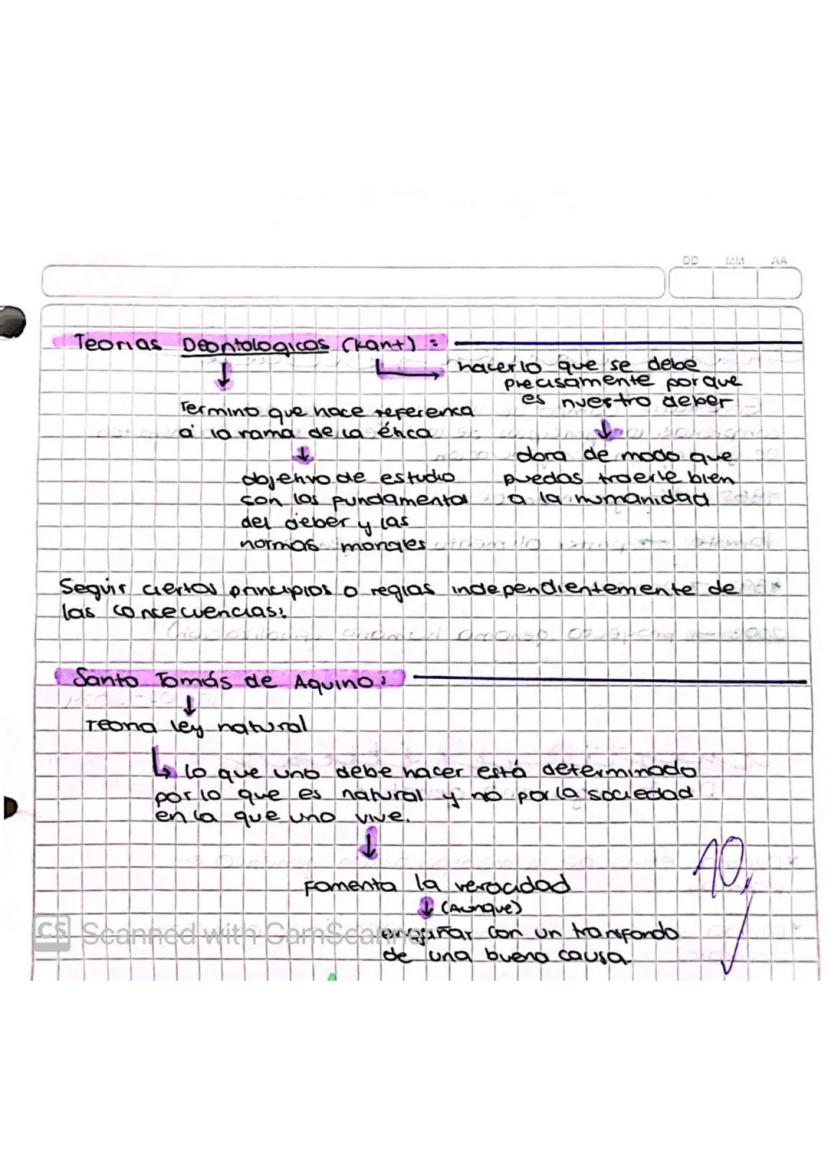 DD MM AA
Teorias Deontologicas (Kant) :
hacer lo que se debe
precisamente porque
es nuestro deber
Termino que hace referenca
a la rama de la ética
obra de modo que
puedas traerle bien
a la humanidad
objetivo de estudio
son los fundamento
del deber y las
normas morales
Seguir ciertos principios o reglas independientemente de
las consecuencias:
Santo Tomás de Aquino:
Teoria ley natural
lo que uno debe hacer está determinado
por lo que es natural y no por la sociedad
en la que uno vive.
fomenta la veracidad
(Aunque)
engañar con un transfondo
de una buena causa.
10
CS Scanned with CamScanner